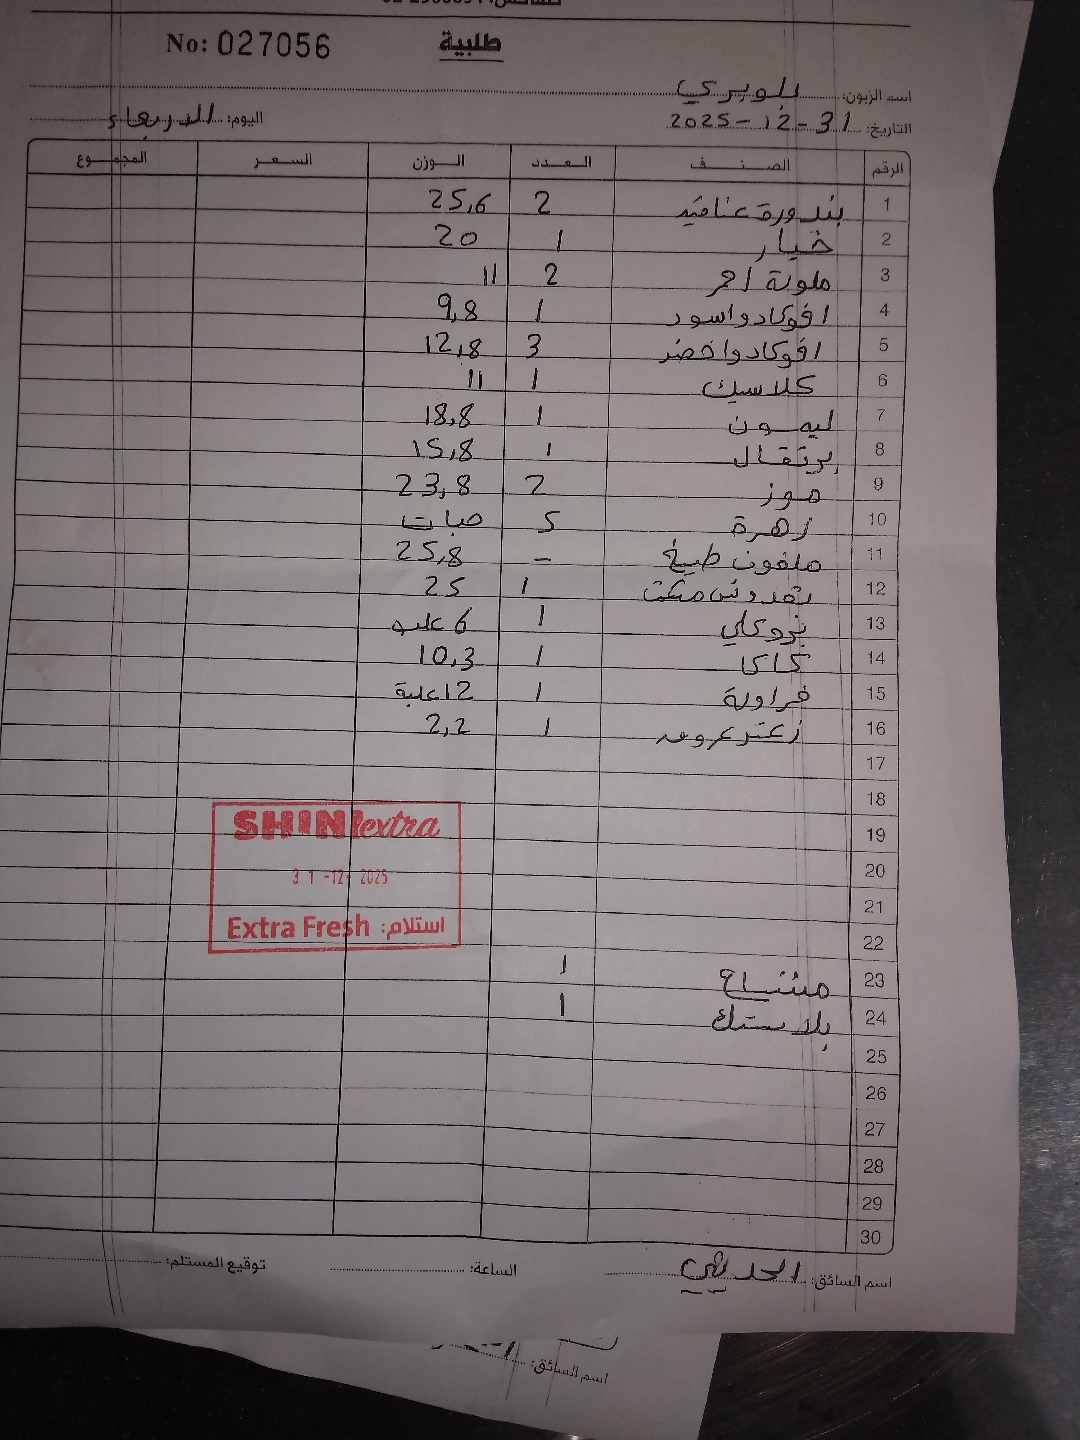 No: 027056
طلبية
اسم الزبون: بلوبري
التاريخ: 31-12-2025 اليوم: الاربعاء
الرقم الصنف العدد الوزن السعر المجموع
1 بندورة عناقيد 2 25,6
2 خيار 1 20
3 ملونة احمر 2 11
4 افوكادو اسود 1 9,8
5 افوكادو اخضر 3 12,8
6 كلاسيك 1 11
7 ليمون 1 18,8
8 برتقال 1 15,8
9 موز 2 23,8
10 زهرة 5 حبات
11 ملفوف طبيخ - 25,8
12 بقدونس مكت 1 25
13 بروكلي 1 6 علبه
14 كاكا 1 10,3
15 فراولة 1 12 علبة
16 زعتر عروق 1 2,2
17
18
19
20
21
22
23 مشتاح 1
24 بلاستك 1
25
26
27
28
29
30
SHINI extra
31-12-2025
Extra Fresh استلام:
اسم السائق: الساعة: توقيع المستلم:
اسم السائق: